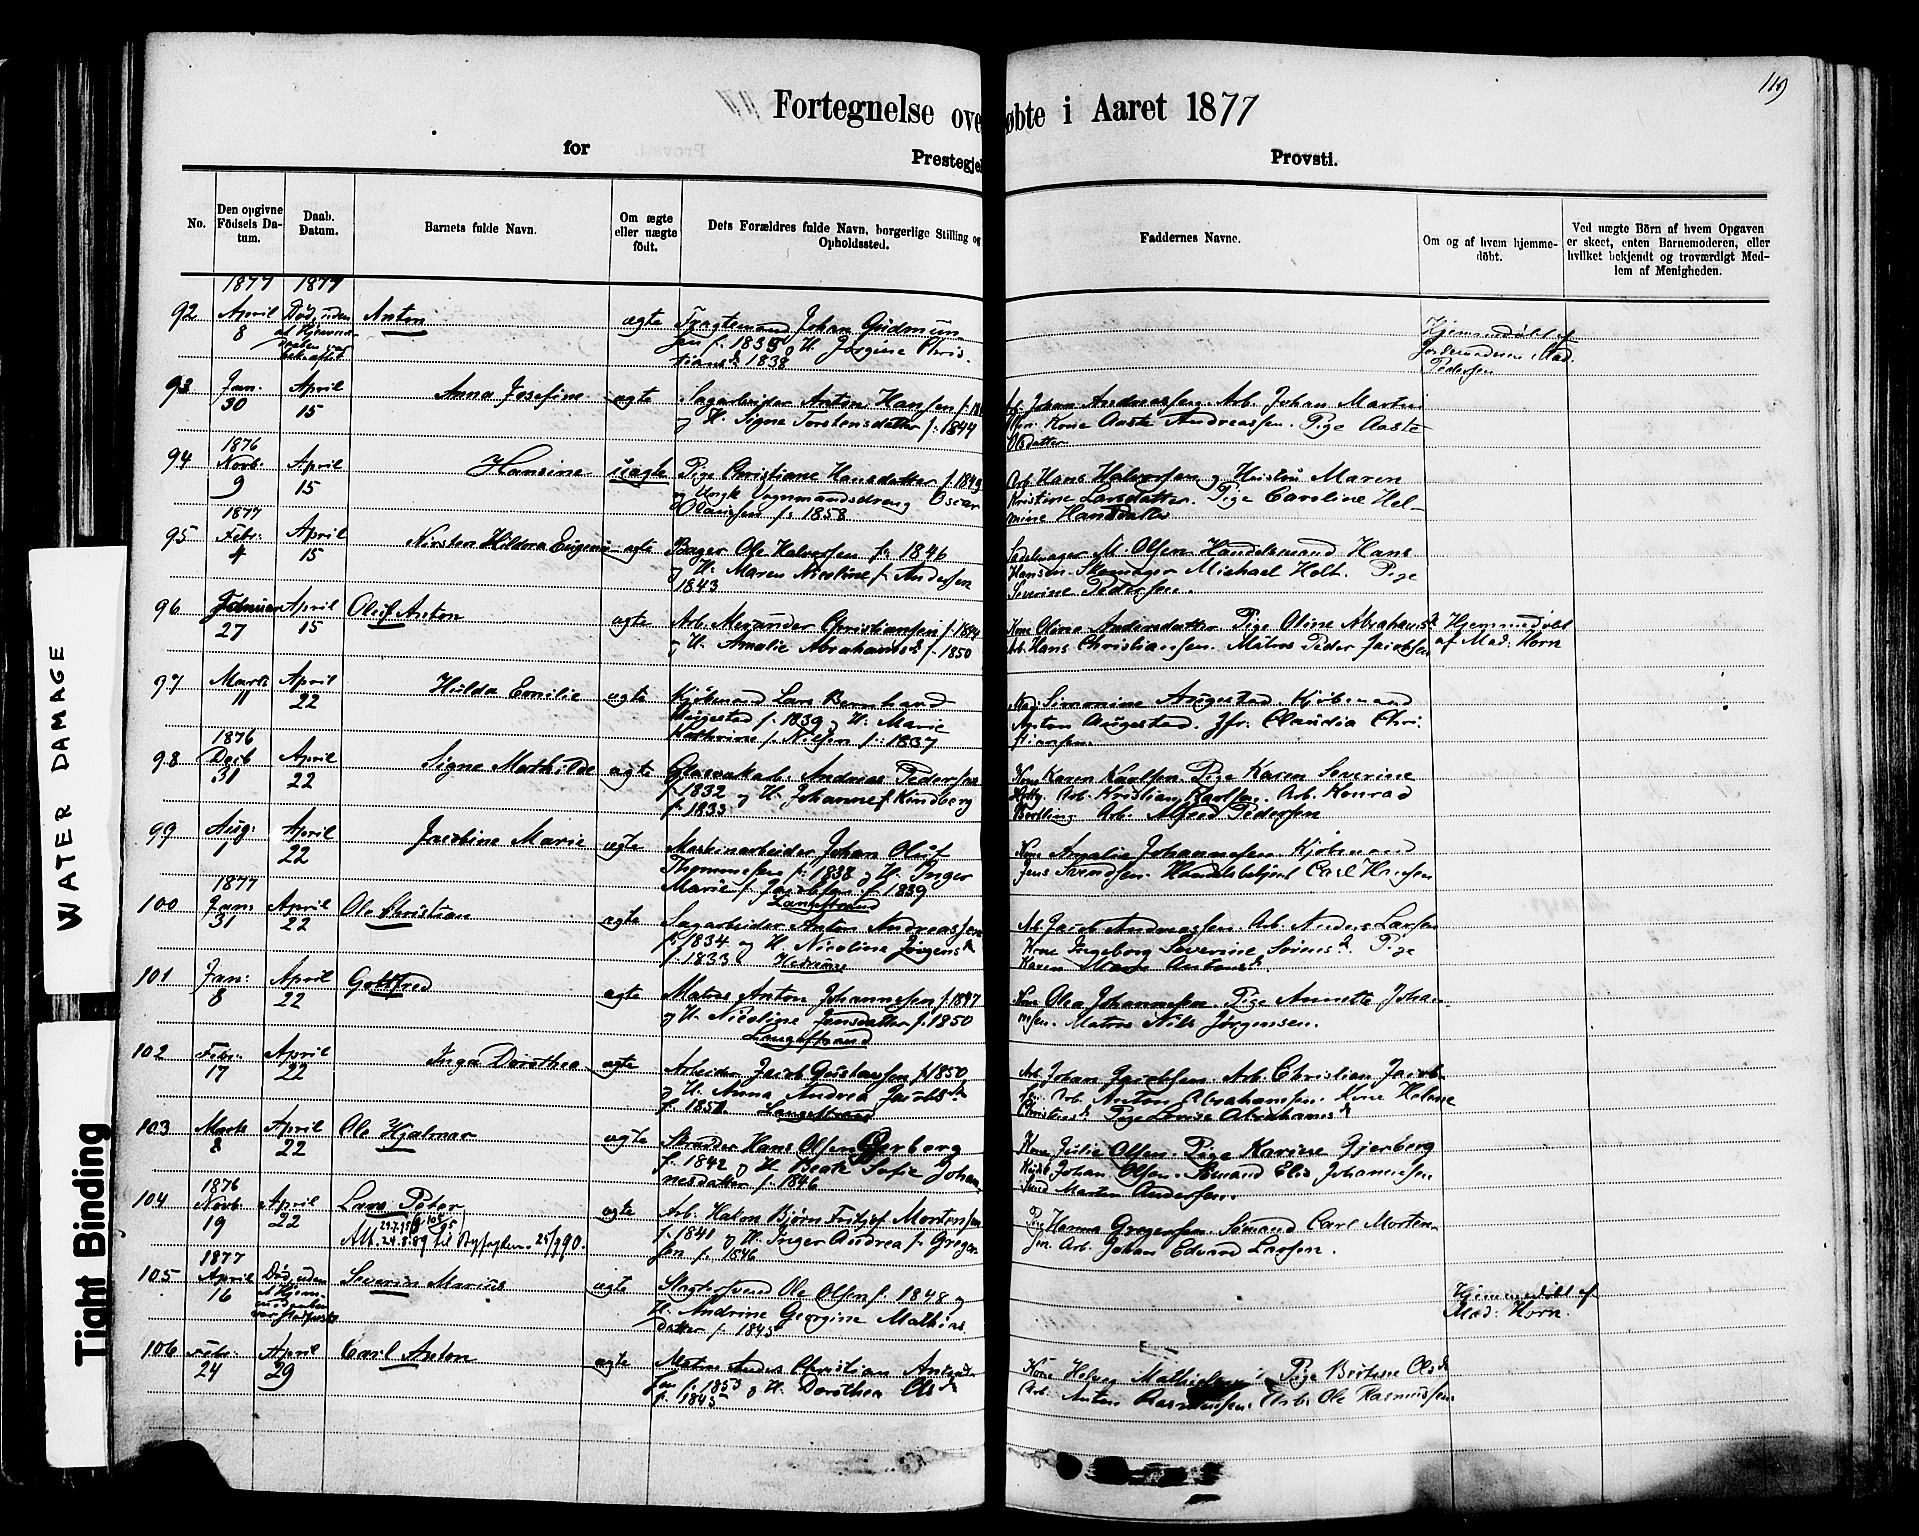 119
Fortegnelse ove øbte i Aaret 1877
for Prestegjel Provsti.
No.
Den opgivne Födsels Da-
tum.
Daab.
Datum.
Barnets fulde Navn.
Om ægte
eller uægte
födt.
Dets Forældres fulde Navn, borgerlige Stilling og
Opholdssted.
Faddernes Navne.
Om og af hvem hjemme-
döbt.
Ved uægte Börn af hvem Opgaven
er skeet, enten Barnemoderen, eller
hvilket bekjendt og troværdigt Med-
lem af Menigheden.
1877 1877
92 April 8 Død, uden Anton ægte Fragtemand Johan Gudmun
sen f. 1835 H. Jørgine Chris
tiansd 1838
Hjemmedøbt af
Jordemoderen Mad.
Pedersen
93 Jan. 30 April 15 Anna Josefine ægte Sagarbeider Anton Hansen
og H. Signe Torstensdatter f. 1844
Arb. Johan Andreassen. Arb. Johan Martin
Olsen. Kone Aaste Andreassen. Pige Aaste
Olsdatter
94 1876 Novb. 9 April 15 Hansine uægte Pige Christiane Hansdatter f. 1849
og Ungk. Vognmandsdreng Oscar
Olausen f. 1858
Arb. Hans Halvorsen og Hustru Maren
Kristine Larsdatter. Pige Caroline Hel-
mine Hansdatter
95 1877 Febr. 4 April 15 Kirsten Hildora Eugenie ægte Bager Ole Halvorsen f. 1846
og H. Maren Nicoline f. Andersen
1843
Sadelmager M. Olsen Handelsmand Hans
Hansen. Skomager Michael Holt. Pige
Severine Pedersen.
96 Februar 27 April 15 Oluf Anton ægte Arb. Alexander Christiansen
og H. Amalie Abrahamsd. f. 1850
Kone Oline Andersdatter. Pige Oline Abrahamsd
Arb. Hans Christiansen. Matros Peder Jacobsen
Hjemmedøbt
af Mad: Horn
97 Marts 11 April 22 Hulda Emilie ægte Kjøbmand Lars Bernhard
Augestad f. 1839 og H. Marie
Kathrine f. Nilsen f. 1837
Mad. Simonine Augestad. Kjøbmand
Anton Augestad. Jfr. Claudia Chri-
stiansen.
98 1876 Decb 31 April 22 Signe Mathilde ægte Andreas Pedersen
f. 1832 og H. Johanne f. Kindberg
f. 1833
Kone Karen Karlsen. Pige Karen Severine
Arb. Kristian Karlsen. Arb. Konrad
Arb. Alfred Pedersen
99 Aug: 1 April 22 Jacobine Marie ægte Maskinarbeider Johan Oluf
Thommesen f. 1838 og H. Inger
Marie f. Jacobsen f. 1839
Langestrand
Kone Amalie Johannessen Kjøbmand
Jens Svendsen. Handelsbetjent Carl Hansen
100 1877 Jan: 31 April 22 Ole Christian ægte Sagarbeider Anton Andreassen
f. 1834 og H. Nicoline Jørgensd
f. 1833 Hedrum
Arb Jacob Andreassen Arb. Anders Larsen
Kone Ingeborg Severine Sørensd. Pige
Karen Marie Antonsd.
101 Jan: 8 April 22 Gottfred ægte Matros Anton Johannesen f. 1847
og H. Nicoline Jensdatter f. 1850
Langestrand
Kone Olea Johannessen. Pige Annette Johan-
nesen. Matros Nils Jørgensen.
102 Febr. 17 April 22 Inga Dorothea ægte Arbeider Jacob Gustavsen f. 1850
og H. Anna Andrea Jacobsd.
Langestrand
Arb Johan Jacobsen. Arb. Christian Jacob-
sen Arb. Anton Abrahamsen. Kone Helene
Christensd. Pige Lovise Abrahamsd
103 Marts 8 April 22 Ole Hjalmar ægte Skræder Hans Olsen Gjerberg
f. 1842 og H. Beate Sofie Johan
nesdatter f. 1846
Kone Julie Olsen. Pige Karine Gjerberg
Johan Olsen. Sømand Elis Johannesen
Martin Andersen.
104 1876 Novb. 19 April 22 Lars Peter ægte Arb. Hakon Bjørn Fritjof Mortensen
f. 1841 og H. Inger Andrea f. Greger
sen f. 1846
Att. 24.8.89 til Byfogden. 25/9 90.
Pige Hanna Gregersen. Sømand Carl Morten
sen. Arb. Johan Edvard Larsen.
105 1877 April 16 Død uden Severin Marius ægte Slagtersvend Ole Olsen f. 1848 og
H. Andrine Georgine Mathias
datter f. 1845
Hjemmedøbt af
Mad: Horn.
106 Febr. 24 April 29 Carl Anton ægte Matros Anders Christian Antons
sen f. 1853 og H. Dorothea Olsd
f. 1845
Kone Helveg Pige Bertine Olsd
Arb. Anton Rasmussen. Arb. Ole Rasmussen
WATER DAMAGE
Tight Binding